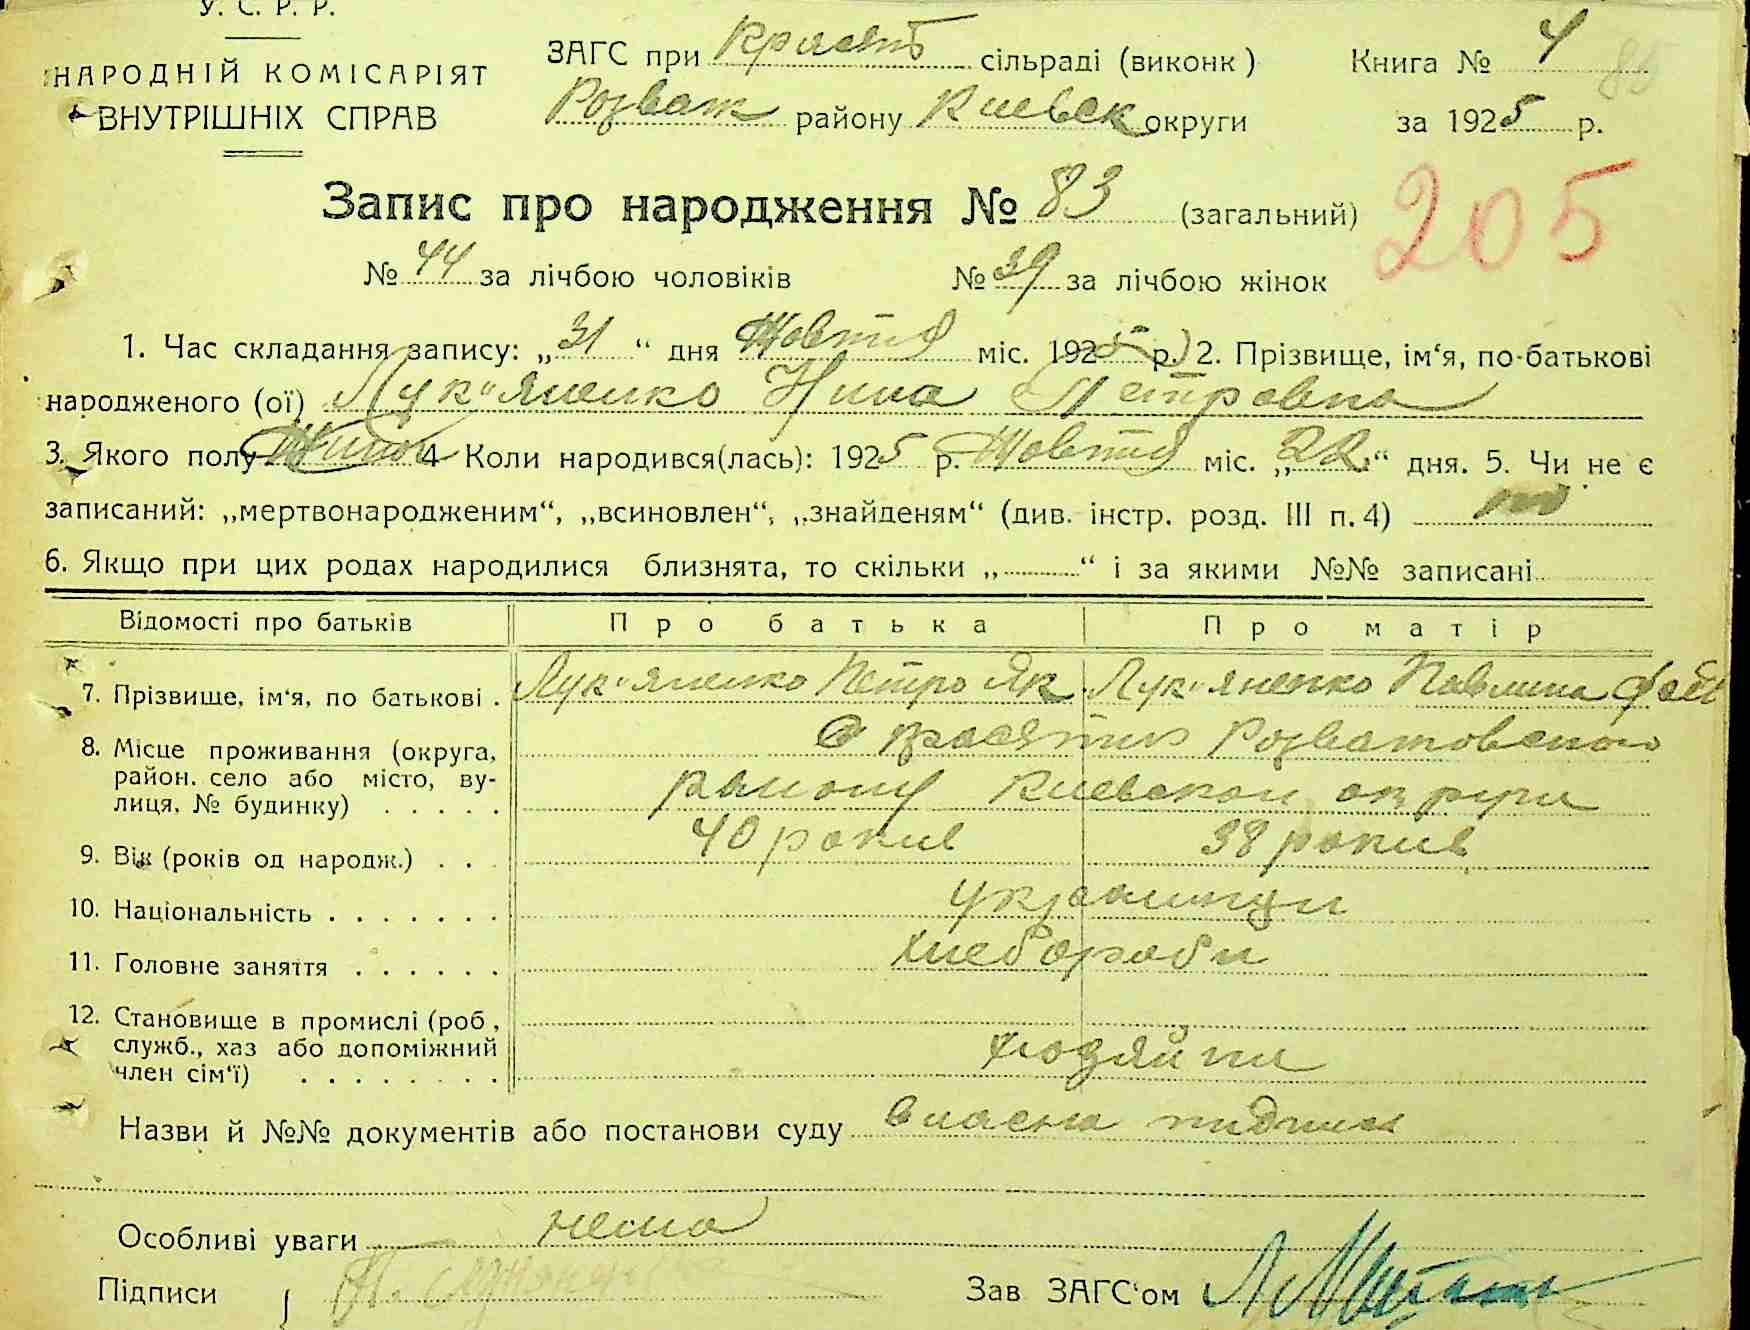 У. С. Р. Р.
НАРОДНІЙ КОМІСАРІЯТ
ВНУТРІШНІХ СПРАВ
ЗАГС при Красят сільраді (виконк)
Розваж району Киевск округи
Книга № 4
85
за 1925 р.
Запис про народження № 83 (загальний)
205
№ 44 за лічбою чоловіків № 39 за лічбою жінок
1. Час складання запису: „31“ дня Жовтня міс. 1925 р. 2. Прізвище, ім‘я, по-батькові
народженого (ої) Лук"яненко Нина Петровна
3. Якого полу 4 Коли народився(лась): 1925 р. Жовтня міс. „22“ дня. 5. Чи не є
записаний: „мертвонародженим“, „всиновлен“, „знайденям“ (див. інстр. розд. III п. 4)
6. Якщо при цих родах народилися близнята, то скільки „ “ і за якими №№ записані
Відомості про батьків Про батька Про матір
7. Прізвище, ім‘я, по батькові . Лук"яненко Петро Як Лук"яненко Павлина
8. Місце проживання (округа, район. село або місто, вулиця, № будинку) . . . . .
с Красятичі Розважовского
району Киевской округи
9. Вік (років од народж.) . . 40 рокив 38 рокив
10. Національність . . . . . . . украинци
11. Головне заняття . . . . . . хлебороби
12. Становище в промислі (роб, служб., хаз або допоміжний член сім‘ї) . . . . . . . .
хозяйни
Назви й №№ документів або постанови суду власна пидпись
Особливі уваги нема
Підписи {
Зав ЗАГС‘ом